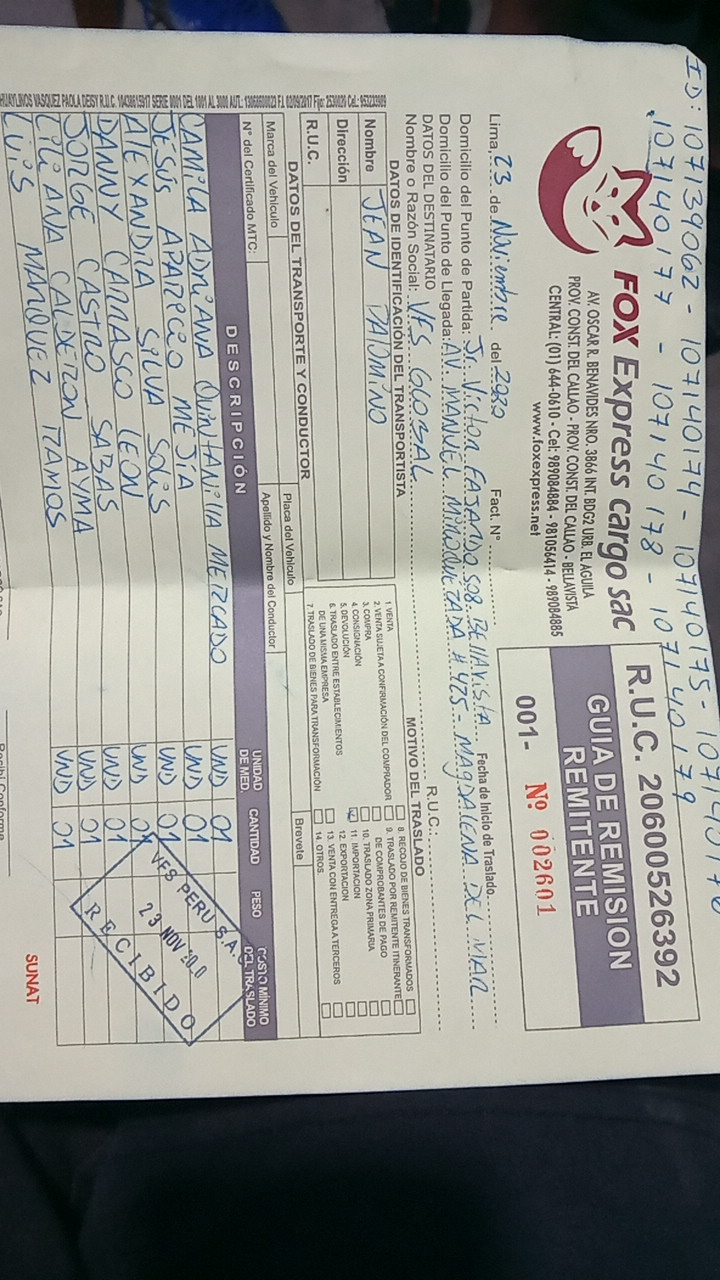 ID: 107139062 - 107140174 - 107140175 - 107140176
107140177 - 107140178 - 107140179
FOX Express cargo sac
AV. OSCAR R. BENAVIDES NRO. 3866 INT. BDG2 URB. EL AGUILA
PROV. CONST. DEL CALLAO - PROV. CONST. DEL CALLAO - BELLAVISTA
CENTRAL: (01) 644-0610 - Cel: 989084884 - 981056414 - 989084885
www.foxexpress.net
R.U.C. 20600526392
GUIA DE REMISION
REMITENTE
001- Nº 002601
Lima, 23 de Noviembre del 2020 Fact. N° Fecha de Inicio de Traslado
Domicilio del Punto de Partida: Jr. Victor Fajardo 508. Bellavista
Domicilio del Punto de Llegada: AV. MANUEL MIROQUEZADA # 425 - MAGDALENA DEL MAR
DATOS DEL DESTINATARIO
Nombre o Razón Social: VFS GLOBAL R.U.C.
DATOS DE IDENTIFICACIÓN DEL TRANSPORTISTA
Nombre JEAN PALOMINO
Dirección
R.U.C.
MOTIVO DEL TRASLADO
1. VENTA
2. VENTA SUJETA A CONFIRMACIÓN DEL COMPRADOR
3. COMPRA
4. CONSIGNACIÓN
5. DEVOLUCIÓN
6. TRASLADO ENTRE ESTABLECIMIENTOS
DE UNA MISMA EMPRESA
7. TRASLADO DE BIENES PARA TRANSFORMACIÓN
8. RECOJO DE BIENES TRANSFORMADOS
9. TRASLADO POR REMITENTE ITINERANTE
DE COMPROBANTES DE PAGO
10. TRASLADO ZONA PRIMARIA
11. IMPORTACION
12. EXPORTACION
13. VENTA CON ENTREGA A TERCEROS
14. OTROS
DATOS DEL TRANSPORTE Y CONDUCTOR
Marca del Vehículo Placa del Vehículo
N° del Certificado MTC: Apellido y Nombre del Conductor Brevete
DESCRIPCIÓN UNIDAD DE MED. CANTIDAD PESO COSTO MÍNIMO DEL TRASLADO
CAMILA ADRIANA QUINTANILLA MERCADO UND 01
JESUS APARICIO MEJIA UND 01
ALEXANDRA SILVA SOLIS UND 01
DANNY CARRASCO LEON UND 01
JORGE CASTRO SABAS UND 01
LILIANA CALDERON AYMA UND 01
LUIS MARQUEZ RAMOS UND 01
VFS PERU S.A.
23 NOV 2020
RECIBIDO
SUNAT
HUAYLINOS VASQUEZ PAOLA DEISY R.U.C. 10436615917 SERIE 0001 DEL 1001 AL 3000 AUT.: 13068600023 F.I. 02/09/2017 Fijo: 2530020 Cel.: 953233989
Recibí Conforme